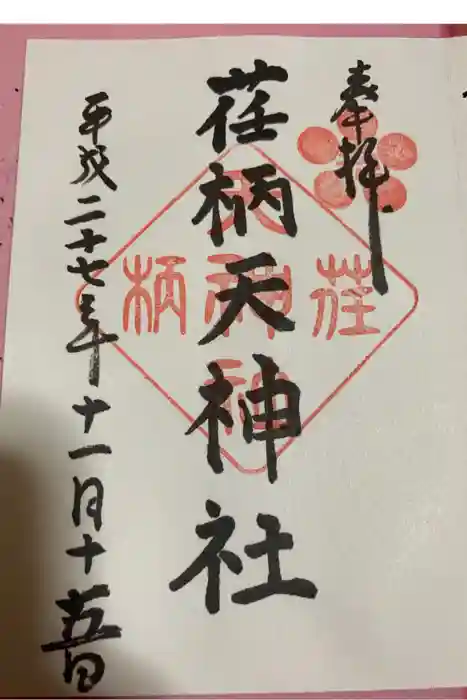 奉拝
荏柄天神社
荏柄天神社
平成二十七年十一月十五日